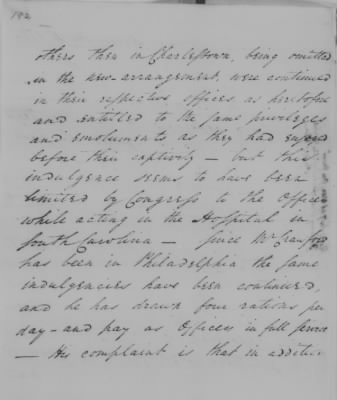 192
others then in Charlestown, being omitted
in the new-arrangement, were continued
in their respective offices as heretofore
and entitled to the same priveleges
and emoluments as they had enjoyed
before their captivity — but this
indulgence seems to have been
limited by Congress to the Officers
while acting in the Hospital in
South Carolina — Since Mr Craford
has been in Philadelphia the same
indulgencies have been continued,
and he has drawn four rations per
day - and pay as Officers in full service
— His complaint is that in addition